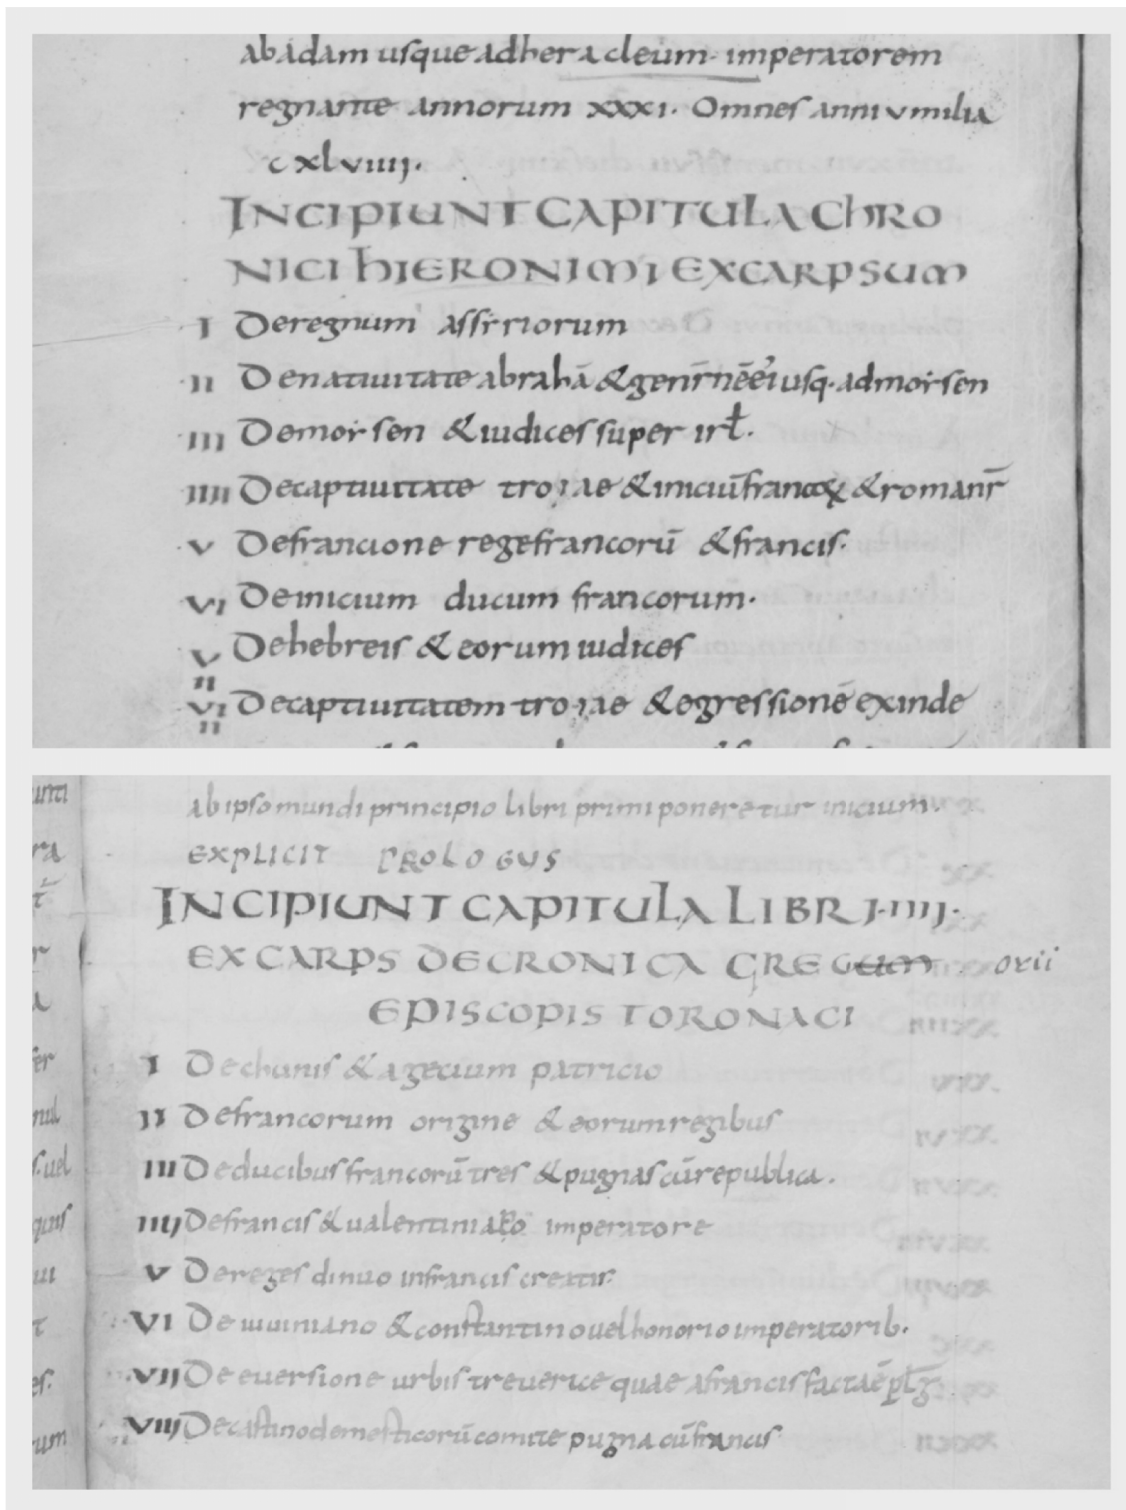 abadam usque adheracleum imperatorem
regnante annorum xxxi. Omnes anni v milia
c xlviiij.
INCIPIUNT CAPITULA ChRO
NICI hIERONIMI EXCARPSUM
I Deregnum assiriorum
II Denatiuitate abrahā & usq. admoisen
III Demoisen & iudices super irƚ.
IIII Decaptiuitate troiae & iniciū & romanis
V Defrancione rege francorū & francis.
VI Deinicium ducum francorum.
V Dehebreis & eorum iudices
II
VI Decaptiuitatem troiae & egressionē exinde
II
ab ipso mundi principio libri primi poneretur inicium.
EXPLICIT PROLOGUS
INCIPIUNT CAPITULA LIBRI. IIIJ.
EXCARPS DECRONICA GREG
EPISCOPIS TORONACI
I Dechunis & agecium patricio
II Defrancorum origine & eorum regibus
III Deducibus francorū tres & pugnas cū republica.
IIIJ Defrancis & imperatore
V Dereges dinuo infrancis creatis
VI De iuuiniano & constantino uel honorio imperatorib.
VII De euersione urbis treuerice quae afrancis factaē
VIIJ Decastino domesticorū comite pugna cū francis